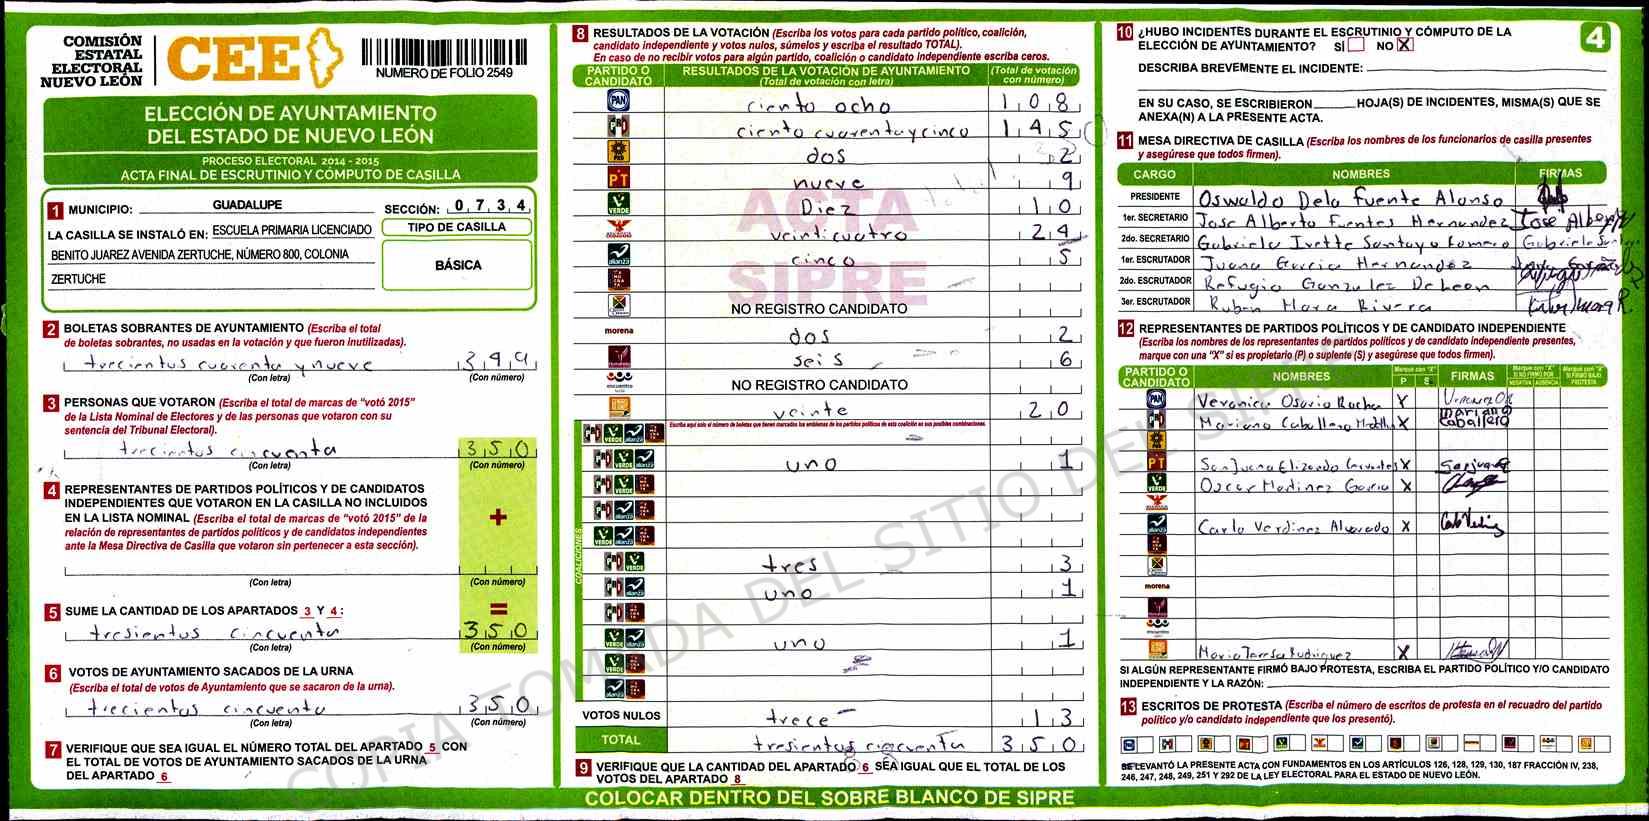 COMISIÓN
ESTATAL
ELECTORAL
NUEVO LEÓN
CEE
NUMERO DE FOLIO 2549
ELECCIÓN DE AYUNTAMIENTO
DEL ESTADO DE NUEVO LEÓN
PROCESO ELECTORAL 2014 - 2015
ACTA FINAL DE ESCRUTINIO Y CÓMPUTO DE CASILLA
1 MUNICIPIO: GUADALUPE SECCIÓN: 0 7 3 4
LA CASILLA SE INSTALÓ EN: ESCUELA PRIMARIA LICENCIADO
BENITO JUAREZ AVENIDA ZERTUCHE, NÚMERO 800, COLONIA
ZERTUCHE
TIPO DE CASILLA
BÁSICA
2 BOLETAS SOBRANTES DE AYUNTAMIENTO (Escriba el total
de boletas sobrantes, no usadas en la votación y que fueron inutilizadas).
trecientos cuarenta y nueve 3 4 9
(Con letra) (Con número)
3 PERSONAS QUE VOTARON (Escriba el total de marcas de “votó 2015”
de la Lista Nominal de Electores y de las personas que votaron con su
sentencia del Tribunal Electoral).
trecientos cincuenta 3 5 0
(Con letra) (Con número)
4 REPRESENTANTES DE PARTIDOS POLÍTICOS Y DE CANDIDATOS
INDEPENDIENTES QUE VOTARON EN LA CASILLA NO INCLUIDOS
EN LA LISTA NOMINAL (Escriba el total de marcas de “votó 2015” de la
relación de representantes de partidos políticos y de candidatos independientes
ante la Mesa Directiva de Casilla que votaron sin pertenecer a esta sección).
+
(Con letra) (Con número)
=
5 SUME LA CANTIDAD DE LOS APARTADOS 3 Y 4 :
tresientos cincuenta 3 5 0
(Con letra) (Con número)
6 VOTOS DE AYUNTAMIENTO SACADOS DE LA URNA
(Escriba el total de votos de Ayuntamiento que se sacaron de la urna).
trecientos cincuenta 3 5 0
(Con letra) (Con número)
7 VERIFIQUE QUE SEA IGUAL EL NÚMERO TOTAL DEL APARTADO 5 CON
EL TOTAL DE VOTOS DE AYUNTAMIENTO SACADOS DE LA URNA
DEL APARTADO 6
8 RESULTADOS DE LA VOTACIÓN (Escriba los votos para cada partido político, coalición,
candidato independiente y votos nulos, súmelos y escriba el resultado TOTAL).
En caso de no recibir votos para algún partido, coalición o candidato independiente escriba ceros.
PARTIDO O CANDIDATO
RESULTADOS DE LA VOTACIÓN DE AYUNTAMIENTO
(Total de votación con letra)
(Total de votación con número)
PAN ciento ocho 1 0 8
PRI ciento cuarenta y cinco 1 4 5
PRD dos 2
PT nueve 9
VERDE Diez 1 0
veinticuatro 2 4
alianza cinco 5
ACTA
SIPRE
NO REGISTRO CANDIDATO
morena dos 2
seis 6
encuentro NO REGISTRO CANDIDATO
veinte 2 0
COALICIONES
Escriba aquí solo el número de boletas que tienen marcados los emblemas de los partidos políticos de esta coalición en sus posibles combinaciones.
PRI VERDE alianza uno 1
PRI VERDE tres 3
PRI alianza uno 1
VERDE alianza uno 1
VOTOS NULOS trece 1 3
TOTAL tresientos cincuenta 3 5 0
9 VERIFIQUE QUE LA CANTIDAD DEL APARTADO 6 SEA IGUAL QUE EL TOTAL DE LOS
VOTOS DEL APARTADO 8
COLOCAR DENTRO DEL SOBRE BLANCO DE SIPRE
10 ¿HUBO INCIDENTES DURANTE EL ESCRUTINIO Y CÓMPUTO DE LA
ELECCIÓN DE AYUNTAMIENTO? SÍ NO X
4
DESCRIBA BREVEMENTE EL INCIDENTE:
EN SU CASO, SE ESCRIBIERON HOJA(S) DE INCIDENTES, MISMA(S) QUE SE
ANEXA(N) A LA PRESENTE ACTA.
11 MESA DIRECTIVA DE CASILLA (Escriba los nombres de los funcionarios de casilla presentes
y asegúrese que todos firmen).
CARGO NOMBRES FIRMAS
PRESIDENTE Oswaldo De la Fuente Alonso
1er. SECRETARIO Jose Alberto Fuentes Hernandez Jose Alberto
2do. SECRETARIO Gabriela Ivette Santoyo Gabriela
1er. ESCRUTADOR Juana Garcia Hernandez
2do. ESCRUTADOR Refugio Gonzalez De Leon
3er. ESCRUTADOR Ruben Mora Rivera
12 REPRESENTANTES DE PARTIDOS POLÍTICOS Y DE CANDIDATO INDEPENDIENTE
(Escriba los nombres de los representantes de partidos políticos y de candidato independiente presentes,
marque con una “X” si es propietario (P) o suplente (S) y asegúrese que todos firmen).
PARTIDO O CANDIDATO NOMBRES Marque con "X" P S FIRMAS
PAN Veronica Osorio Rocha X
PRI Mariano Caballero X Mariano Caballero
PT San Juana Elizondo Cervantes X
VERDE Oscar Martinez Garcia X
alianza Carlo Verdinez Alvarado X
morena
encuentro
Maria Teresa Rodriguez X
SI ALGÚN REPRESENTANTE FIRMÓ BAJO PROTESTA, ESCRIBA EL PARTIDO POLÍTICO Y/O CANDIDATO
INDEPENDIENTE Y LA RAZÓN:
13 ESCRITOS DE PROTESTA (Escriba el número de escritos de protesta en el recuadro del partido
político y/o candidato independiente que los presentó).
SE LEVANTÓ LA PRESENTE ACTA CON FUNDAMENTOS EN LOS ARTÍCULOS 126, 128, 129, 130, 187 FRACCIÓN IV, 238,
246, 247, 248, 249, 251 Y 292 DE LA LEY ELECTORAL PARA EL ESTADO DE NUEVO LEÓN.
COPIA TOMADA DEL SITIO DEL SIPRE